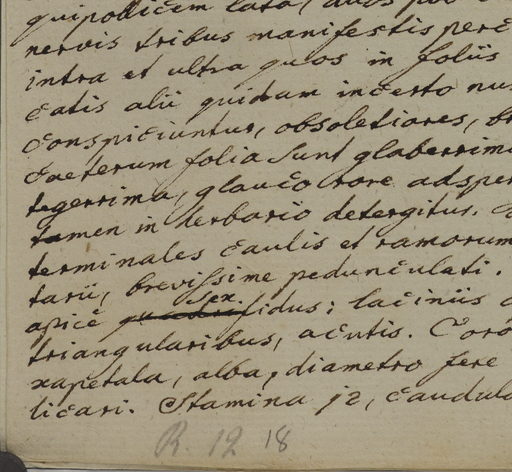 quipollicem lata, duos
nervis tribus manifestis perc
intra et ultra quos in foliis
catis alii quidam incerto nu
conspiciuntur, obsoletiores, b
Caeterum folia sunt glaberrim
tegerrima, glauco rore adspe
tamen in herbario detergitur.
terminales caulis et ramorum
tarii, brevissime pedunculati.
apice sex fidus; laciniis
triangularibus, acutis. Coro
xapetala, alba, diametro fere
licari. Stamina 12, caudula
R. 12 18